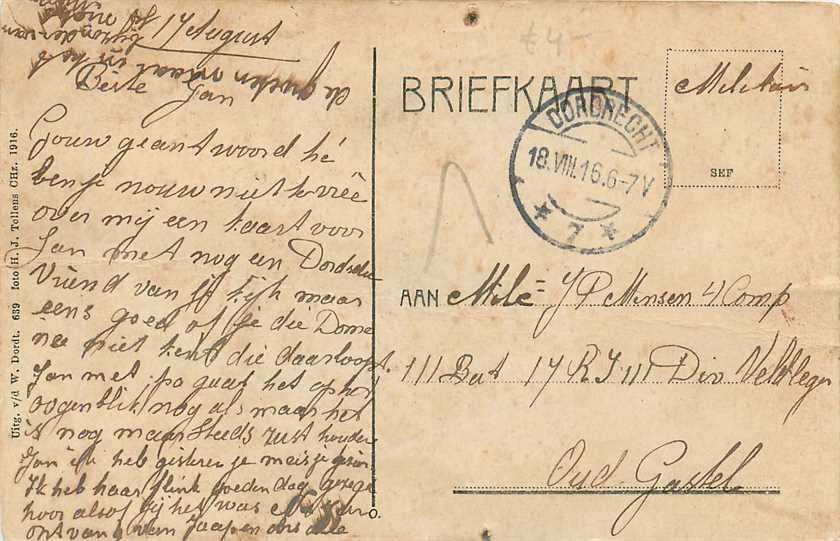 17 August
Beste Jan
Gouw geantwoord hé
ben je nouw niet tevrée
over mij een kaart voor
Jan met nog een Dordsche
Vriend van je kijk maar
eens goed of je die Dome
nee niet kent die daar loopt.
Jan met Po gaat het op het
oogenblik nog als maar het
is nog maar Steeds rust houden
Jan ik heb gisteren je meisje gezien
Ik heb haar flink goeden dag gezegd
hoor alsof zij het was
ontvang van Jaap en ons alle
de groeten
Uitg. v/d W. Dordt. 639 foto H. J. Tollens CHz. 1916.
£4-
BRIEFKAART
Militair
SEF
DORDRECHT
18.VIII.16.6-7V
* 7 *
AAN Mile= J P Mensen 4 Comp
111 Bat 17 R I 111 Div Veldleger
Oud-Gastel